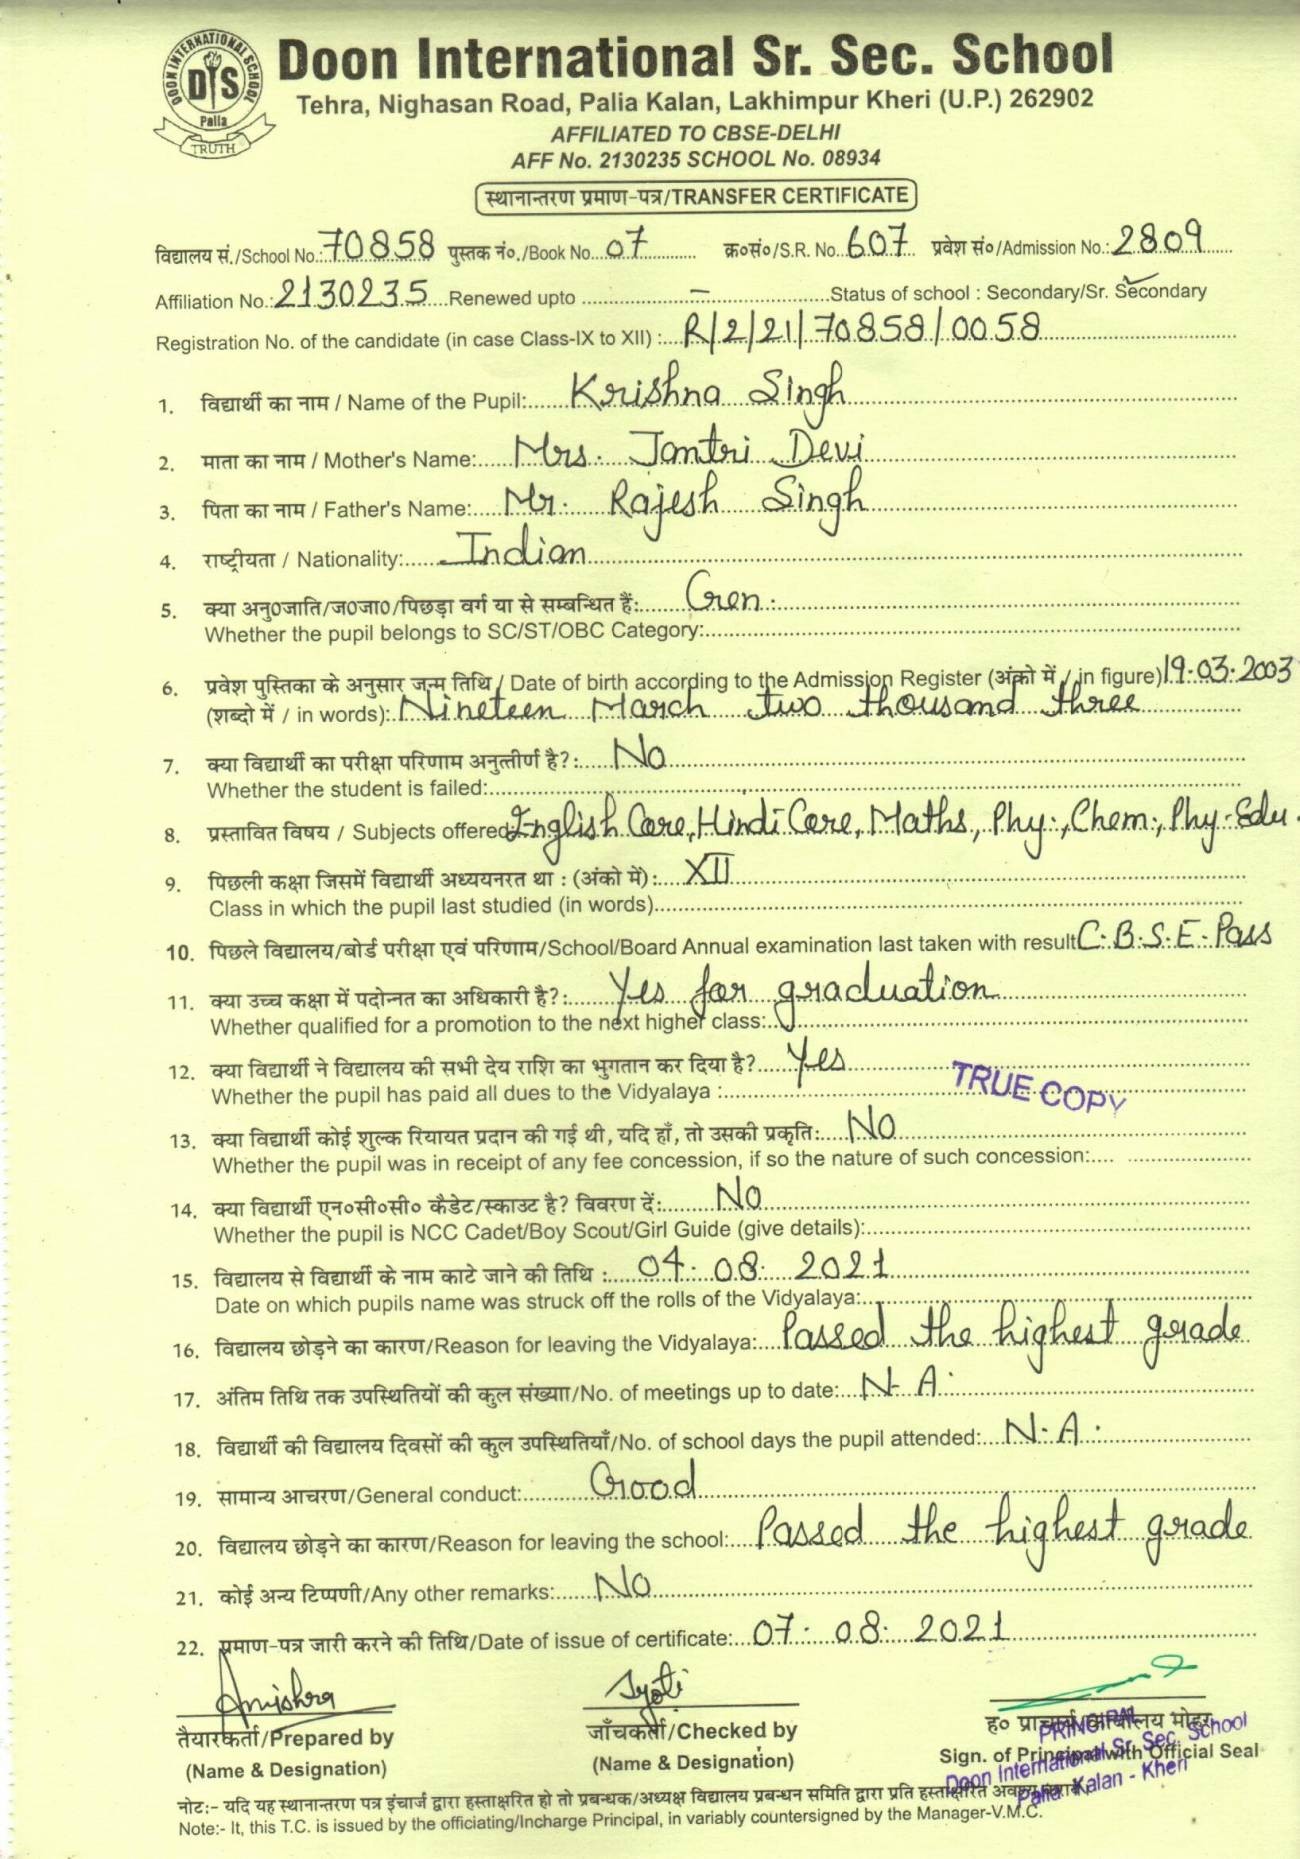 DOON INTERNATIONAL SCHOOL
DIS
Palia
TRUTH
Doon International Sr. Sec. School
Tehra, Nighasan Road, Palia Kalan, Lakhimpur Kheri (U.P.) 262902
AFFILIATED TO CBSE-DELHI
AFF No. 2130235 SCHOOL No. 08934
स्थानान्तरण प्रमाण-पत्र/TRANSFER CERTIFICATE
विद्यालय सं./School No.: 70858 पुस्तक नं०./Book No... 07 क्र०सं०/S.R. No. 607 प्रवेश सं०/Admission No.: 2809
Affiliation No.: 2130235 Renewed upto – Status of school : Secondary/Sr. Secondary
Registration No. of the candidate (in case Class-IX to XII) : R/2/21/70858/0058
1. विद्यार्थी का नाम / Name of the Pupil: Krishna Singh
2. माता का नाम / Mother's Name: Mrs. Jantri Devi
3. पिता का नाम / Father's Name: Mr. Rajesh Singh
4. राष्ट्रीयता / Nationality: Indian
5. क्या अनु०जाति/ज०जा०/पिछड़ा वर्ग या से सम्बन्धित हैं: Gen.
Whether the pupil belongs to SC/ST/OBC Category:
6. प्रवेश पुस्तिका के अनुसार जन्म तिथि / Date of birth according to the Admission Register (अंको में / in figure) 19.03.2003
(शब्दो में / in words): Nineteen March two thousand three
7. क्या विद्यार्थी का परीक्षा परिणाम अनुत्तीर्ण है?: No
Whether the student is failed:
8. प्रस्तावित विषय / Subjects offered English Core, Hindi Core, Maths, Phy., Chem., Phy-Edu.
9. पिछली कक्षा जिसमें विद्यार्थी अध्ययनरत था : (अंको में): XII
Class in which the pupil last studied (in words)
10. पिछले विद्यालय/बोर्ड परीक्षा एवं परिणाम/School/Board Annual examination last taken with result C.B.S.E-Pass
11. क्या उच्च कक्षा में पदोन्नत का अधिकारी है?: Yes for graduation
Whether qualified for a promotion to the next higher class:
12. क्या विद्यार्थी ने विद्यालय की सभी देय राशि का भुगतान कर दिया है? Yes
Whether the pupil has paid all dues to the Vidyalaya :
TRUE COPY
13. क्या विद्यार्थी कोई शुल्क रियायत प्रदान की गई थी, यदि हाँ, तो उसकी प्रकृति: No
Whether the pupil was in receipt of any fee concession, if so the nature of such concession:
14. क्या विद्यार्थी एन०सी०सी० कैडेट/स्काउट है? विवरण दें: No
Whether the pupil is NCC Cadet/Boy Scout/Girl Guide (give details):
15. विद्यालय से विद्यार्थी के नाम काटे जाने की तिथि : 04. 08. 2021
Date on which pupils name was struck off the rolls of the Vidyalaya:
16. विद्यालय छोड़ने का कारण/Reason for leaving the Vidyalaya: Passed the highest grade
17. अंतिम तिथि तक उपस्थितियों की कुल संख्याा/No. of meetings up to date: N.A.
18. विद्यार्थी की विद्यालय दिवसों की कुल उपस्थितियाँ/No. of school days the pupil attended: N.A.
19. सामान्य आचरण/General conduct: Good
20. विद्यालय छोड़ने का कारण/Reason for leaving the school: Passed the highest grade
21. कोई अन्य टिप्पणी/Any other remarks: No
22. प्रमाण-पत्र जारी करने की तिथि/Date of issue of certificate: 07. 08. 2021
Jyoti
तैयारकर्ता/Prepared by जाँचकर्ता/Checked by ह० प्राचार्य कार्यालय मोहर
(Name & Designation) (Name & Designation) Sign. of Principal with Official Seal
PRINCIPAL
Doon International Sr. Sec. School
Palia Kalan - Kheri
नोट:- यदि यह स्थानान्तरण पत्र इंचार्ज द्वारा हस्ताक्षरित हो तो प्रबन्धक/अध्यक्ष विद्यालय प्रबन्धन समिति द्वारा प्रति हस्ताक्षरित
Note:- It, this T.C. is issued by the officiating/Incharge Principal, in variably countersigned by the Manager-V.M.C.